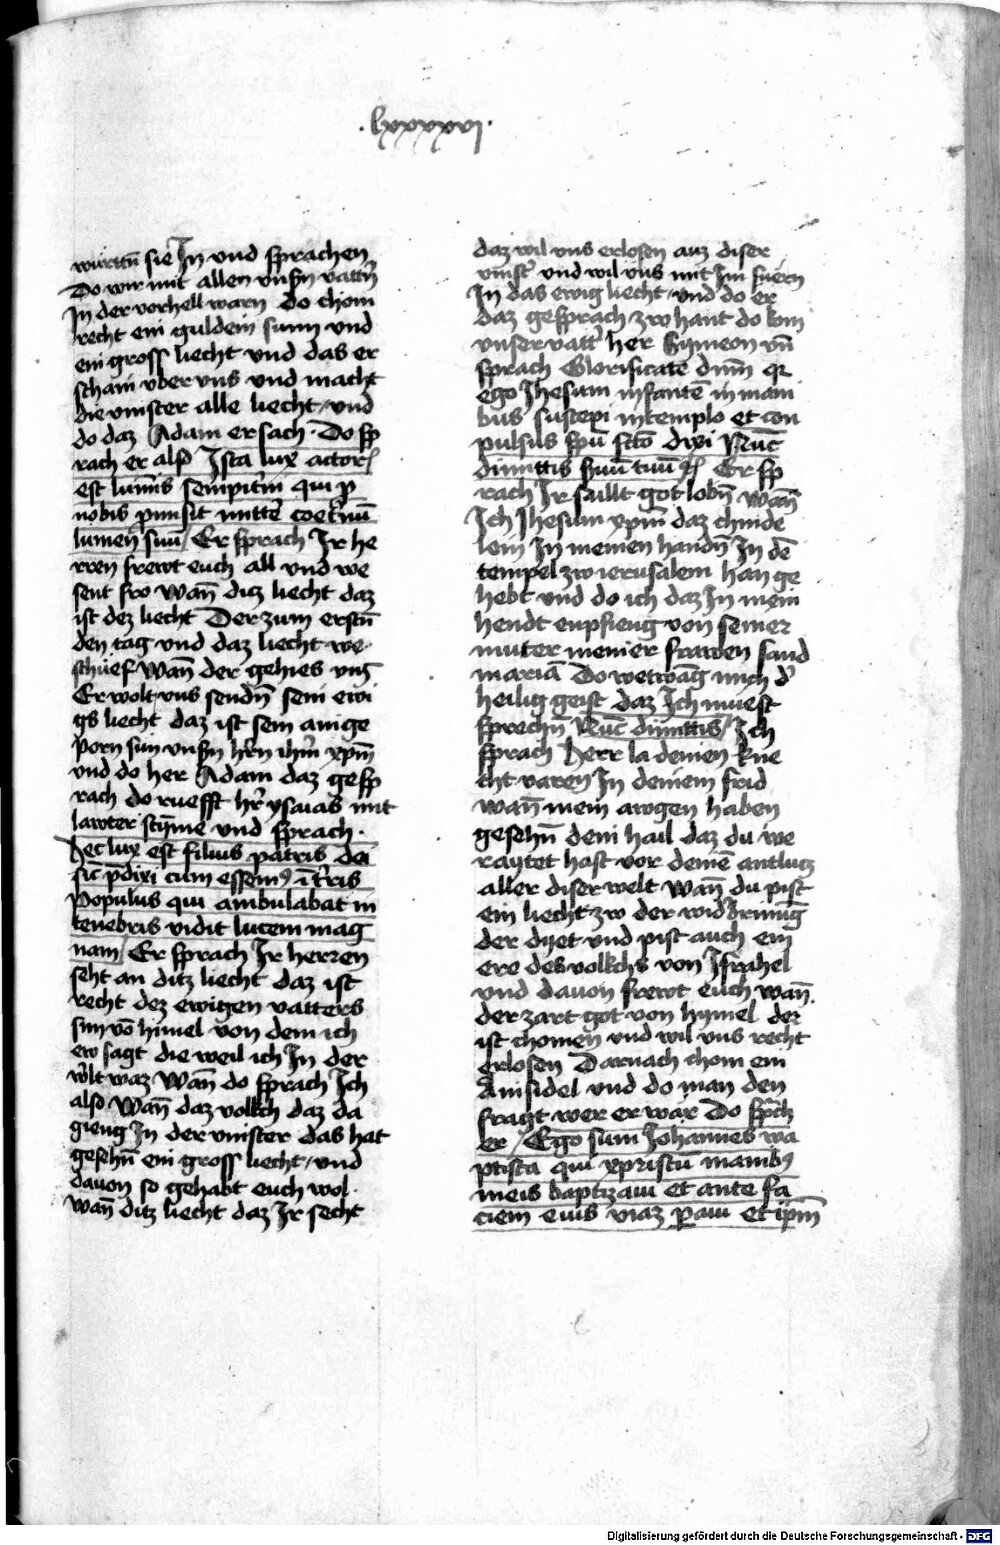 .lxxxxvj.
wurttn̄ sie In vnd sprachen
Do wir mit allen vnsn̄ vattn̄
In der vorhell warn do chom
recht ein guldein sunn vnd
ein gross liecht vnd das er
schain vber vns vnd macht
die vinster alle liecht / vnd
do daz Adam ersach · Do sp
rach er also Ista lux actor
est lumīs sempitīni qui p
nobis pmisit mitte coet'nū
lumen suū / Er sprach Ir he
rren frewt euch all vnd we
sent fro wan̄ ditz liecht daz
ist dez liecht Der zum erstn̄
den tag vnd daz liecht we
schuef wan̄ der gehies vns̄
Er wolt vns sendn̄ sein ewi
gs liecht daz ist sein ainge
porn sun vnsn̄ hr̄n ihm̄ xpm̄
vnd do her Adam daz gesp
rach do ruefft hr̄ ysaias mit
lawter stȳme vnd sprach ·
Hec lux est filius patris dei
sic p̄dixi cum essem⁹ ī t'ris
Populus qui ambulabat in
tenebris vidit lucem mag
nam / Er sprach Ir herren
seht an ditz liecht daz ist
recht dez ewigen vatters
sun vō himel von dem ich
ew sagt die weil ich In der
w'lt waz wan̄ do sprach Ich
also wan̄ daz volkch daz da
gieng In der vinster das hat
gesehn̄ ein gross liecht / vnd
dauon so gehabt euch wol ·
wan̄ ditz liecht daz Ir secht
daz wil vns erlosen auz diser
vinst' vnd wil vns mit Im fuern
In das ewig liecht / vnd do er
daz gesprach zw hant do kom
vnser vatt' her Symeon vn̄
sprach Glorificate dnm̄ qr
ego Jhesum infantē in mani
bus suscepi in templo et con
pulsus spū sctō dixi Nūc
dimittis suū tuū Er sp
rach Ir sullt got lobn̄ wan̄
Ich Jhesum xpm̄ daz chinde
lein In meinen handn̄ In dē
tempel zw ierusalem han ge
hebt vnd do ich daz In mein
hendt enpfieng von seiner
muter meiner frawen sand
mariā Do wetwāg mich d'
heilig geist daz Ich muest
sprechn̄ Nūc dimittis / Ich
sprach Herr la deinen kne
cht varen In deinem frid
wan̄ mein awgen haben
gesehn̄ dein hail daz du we
raytet hast vor deinē antlucz
aller diser welt wan̄ du pist
ein liecht zw der widbrinūg
der dyet vnd pist auch ein
ere des volkchs von Israhel
vnd dauon frewt euch wan̄
der zart got von hymel der
ist chomen vnd wil vns recht
erlosen Darnach chom ein
Ainsidel vnd do man den
fragt wer er wār Do sp̄ch
er / Ego sum Johannes wa
ptista qui xpristū manib⁹
meis baptizaui et ante fa
ciem eius viaz paui et ip̄m